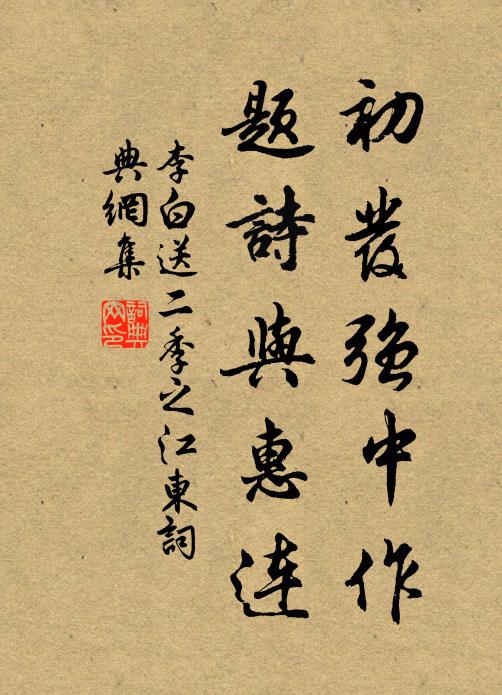 初發強中作
題詩與惠連
李白送二季之江東詞
典網集
詞典網印